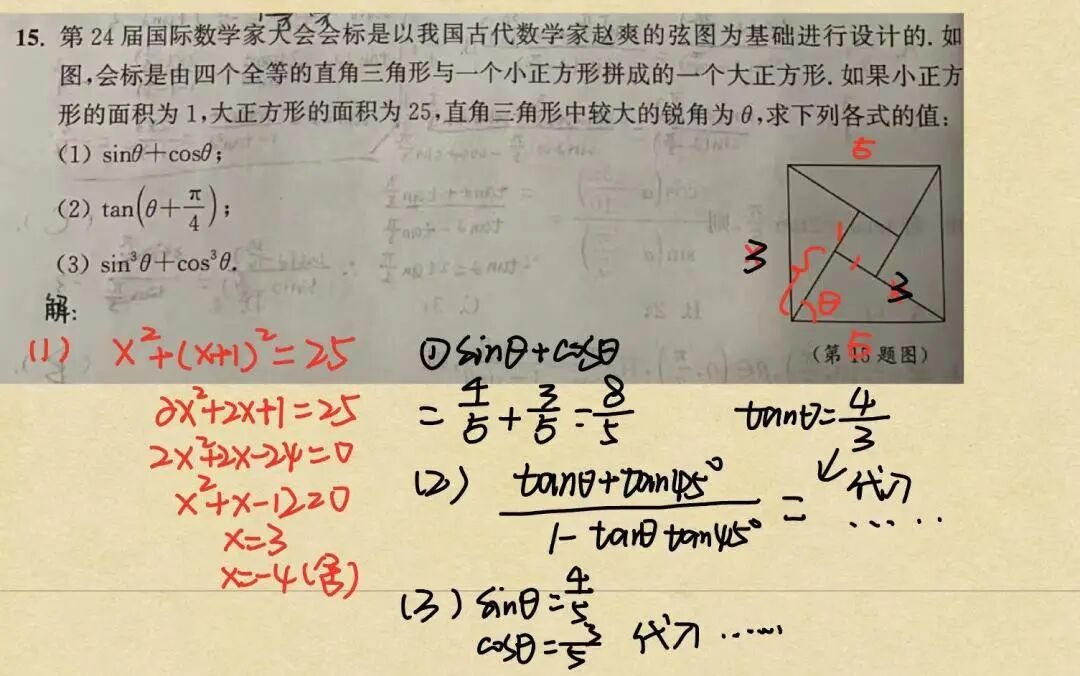 15. 第24届国际数学家大会会标是以我国古代数学家赵爽的弦图为基础进行设计的.如
图,会标是由四个全等的直角三角形与一个小正方形拼成的一个大正方形.如果小正方
形的面积为1,大正方形的面积为25,直角三角形中较大的锐角为θ,求下列各式的值:
(1) sinθ+cosθ;
(2) tan(θ+π/4);
(3) sin³θ+cos³θ.
解:
5
1
3
3
θ
5
(第15题图)
(1) x²+(x+1)²=25
2x²+2x+1=25
2x²+2x-24=0
x²+x-12=0
x=3
x=-4(舍)
① sinθ+cosθ
=4/5+3/5=8/5
tanθ=4/3
(2) (tanθ+tan45°)/(1-tanθtan45°)=
代入
……
(3) sinθ=4/5
cosθ=3/5 代入 ……